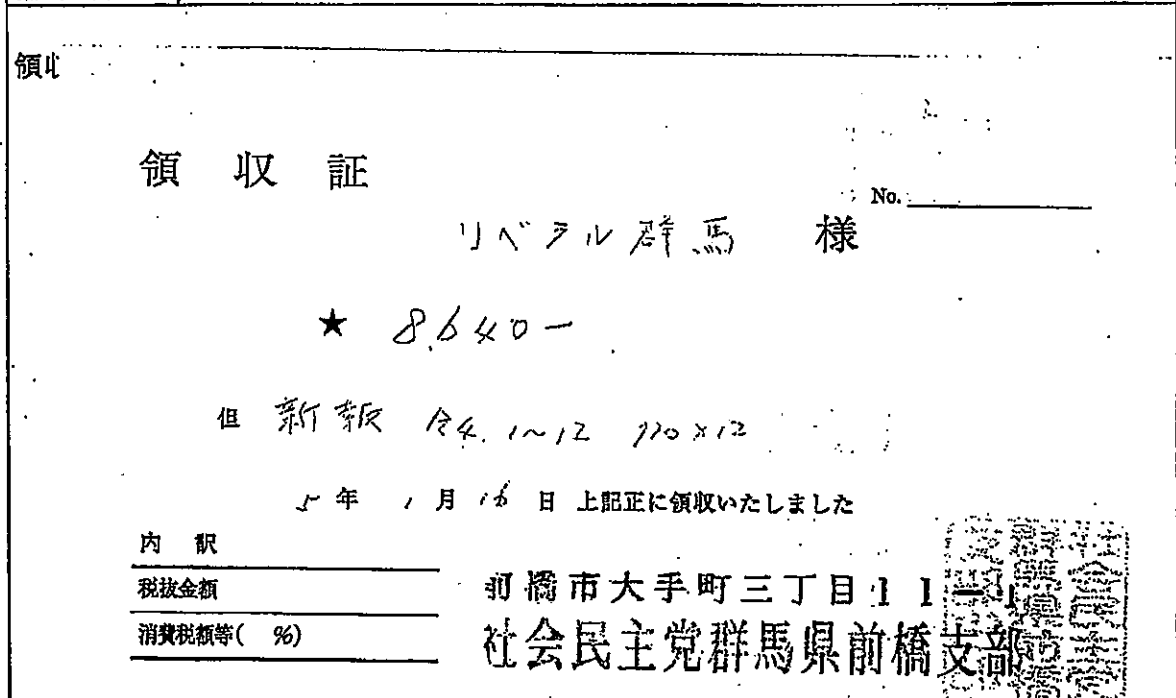 領収
領収証
No.
リベラル群馬 様
★ 8,640-
但 新報 令4.1~12 720×12
5年 1月 16日 上記正に領収いたしました
内訳
税抜金額
消費税額等( %)
前橋市大手町三丁目11-
社会民主党群馬県前橋支部